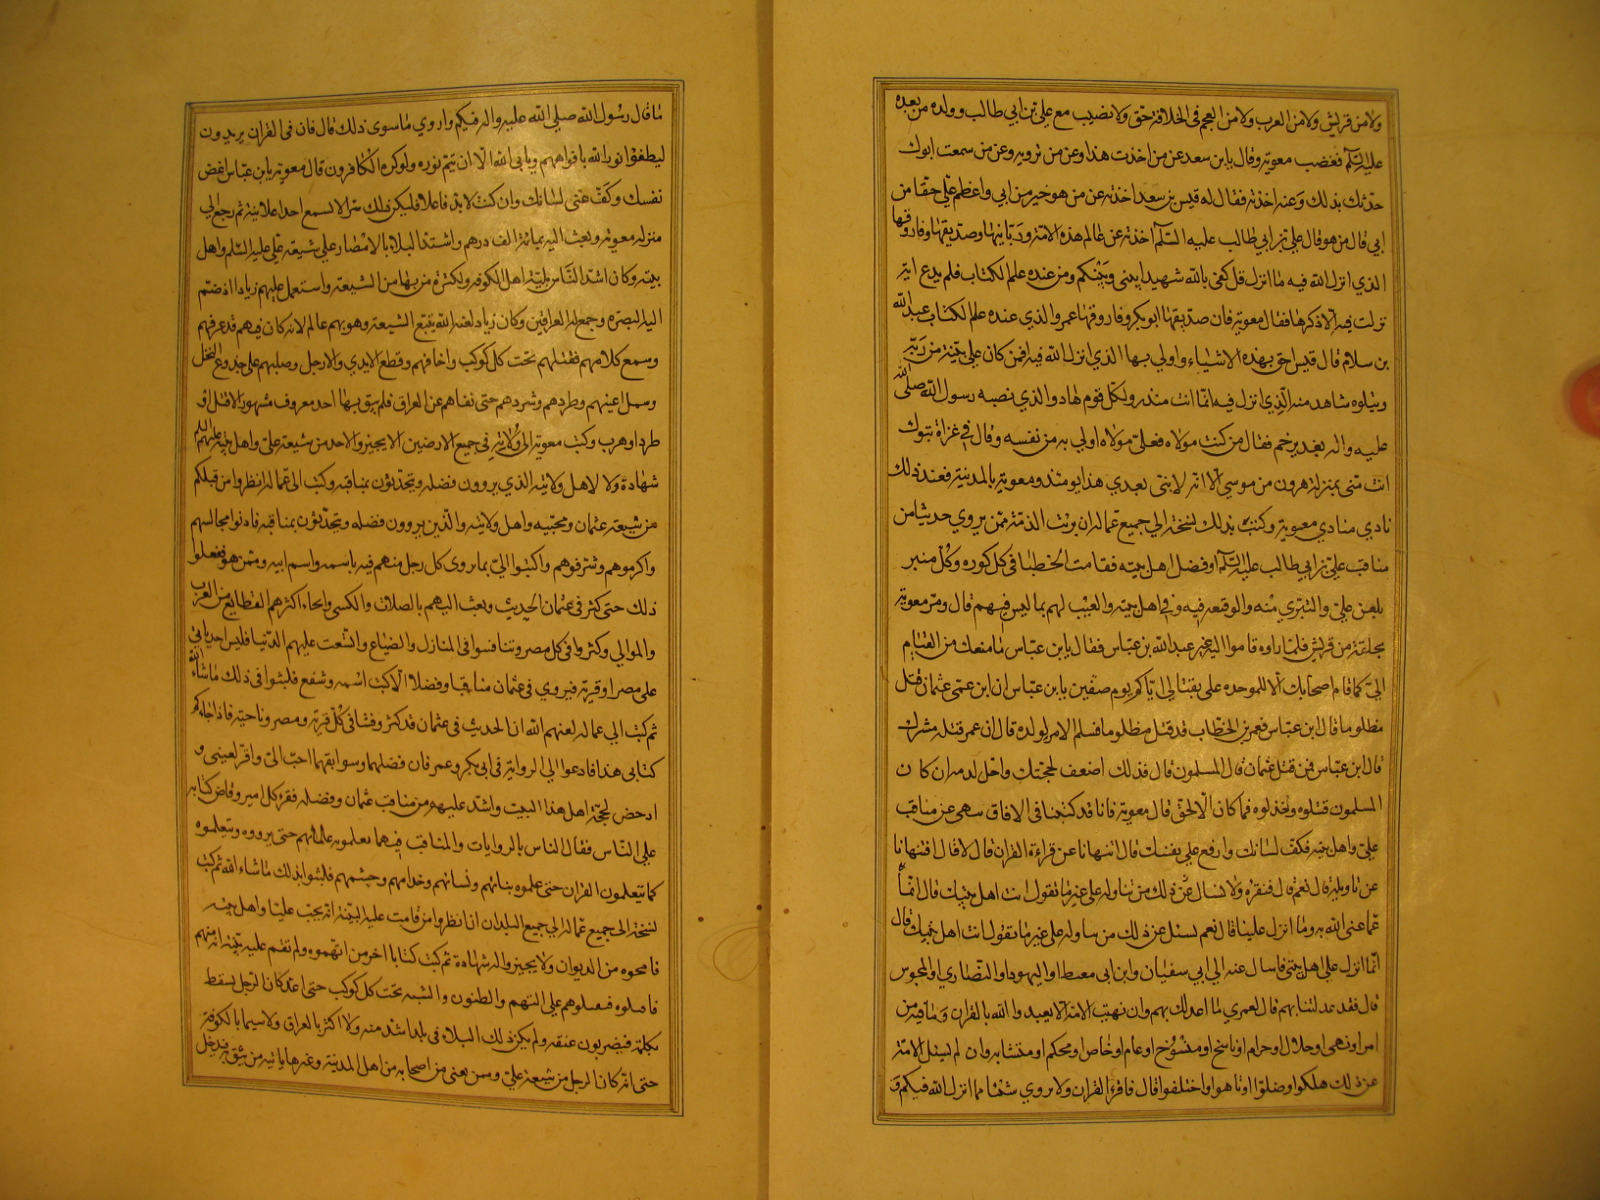 ولا من قريش ولا من العرب ولا من العجم في الخلافة حق ولا نصيب مع علي بن ابي طالب وولده من بعده
عليه السلم فغضب معوية وقال يا بن سعد عن من اخذت هذا وعن من ترويه وعن من سمعت ابوك
حدثك بذلك وعنه اخذته فقال له قيس بن سعد اخذته عن من هو خير من ابي واعظم علي حقا من
ابي قال من هو قال علي بن ابي طالب عليه السلم اخذته عن عالم هذه الامة وربانيها وصديقها وفاروقها
الذي انزل الله فيه ما انزل قل كفى بالله شهيدا بيني وبينكم ومن عنده علم الكتاب فلم يدع اية
نزلت فيه الا ذكرها فقال معوية فان صديقها ابو بكر وفاروقها عمر والذي عنده علم الكتاب عبد الله
بن سلام قال قيس احق بهذه الاشياء واولي بها الذي انزل الله فيه افمن كان علي بينة من ربه
ويتلوه شاهد منه الذي انزل فيه انما انت منذر ولكل قوم هاد والذي نصبه رسول الله صلى الله
عليه واله بغدير خم فقال من كنت مولاه فعلي مولاه اولي به من نفسه وقال في غزاة تبوك
انت مني بمنزلة هرون من موسي الا انه لا نبي بعدي هذا يومئذ ومعوية بالمدينة فعند ذلك
نادي منادي معوية وكتب بذلك نسخة الي جميع عماله ان برئت الذمة ممن يروي حديثا من
مناقب علي بن ابي طالب عليه السلم او فضل اهل بيته فقامت الخطباء في كل كوره وكل منبر
بلعن علي والتبري منه والوقيعه فيه وفي اهل بيته والعيب لهم بما ليس فيهم قال ومر معوية
بحلقة من قريش فلما راوه قاموا اليه غير عبد الله بن عباس فقال يا بن عباس ما منعك من القيام
الي كما قام اصحابك الا للموجده علي بقتالي اياكم يوم صفين يا بن عباس ان ابن عمي عثمان قتل
مظلوما قال ابن عباس فعمر بن الخطاب قد قتل مظلوما فسلم الامر لولده قال ان عمر قتله مشرك
قال ابن عباس فمن قتل عثمان قال المسلمون قال فذلك اضعف لحجتك واحل لدمه ان كان
المسلمون قتلوه وخذلوه فما كان الا لحق قال معوية فانا قد كتبنا في الافاق ننهى عن مناقب
علي واهل بيته فكف لسانك وارفع علي نفسك قال اتنهانا عن قراءة القران قال لا قال افتنهانا
عن تاويله قال نعم قال فنقره ولا نسال عن ذلك من يتاوله على غير ما تقول انت اهل بيتك قال انما
عما عنى الله به وما انزل علينا قال نعم يسئل عن ذلك من يتاوله على غير ما تقول انت اهل بيتك قال
انما انزل علي اهل بيتي فاسال عنه ال ابي سفيان وابن ابي معيط او اليهود او النصاري او المجوس
قال فقد عدلتنا بهم قال لعمري ما اعدلك بهم وان نهيت الامة الا يعبدوا الله بالقران وما فيه من
امر او نهي او حلال او حرام او ناسخ او منسوخ او عام او خاص او محكم او متشابه وان لم تسئل الامة
عن ذلك هلكوا وضلوا او تاهوا واختلفوا قال فاقرء القران ولا تروي شيئا مما انزل الله فيكم و
ما قال رسول الله صلى الله عليه واله فيكم واروي ما سوى ذلك قال فان في القران يريدون
ليطفؤا نور الله بافواههم ويابي الله الا ان يتم نوره ولو كره الكافرون قال معوية يا بن عباس اغض
نفسك وكف عني لسانك وان كنت لا بد فاعلا فليكن ذلك سرا لا يسمع احدا علانية ثم رجع الي
منزله معوية وبعث اليه بمائة الف درهم واشتد البلاء بالامصار على شيعة علي عليه السلم واهل
بيته وكان اشد الناس بلية اهل الكوفه ولكثرة من بها من الشيعة واستعمل عليهم زيادا اذ ضم
اليه البصره وجمع له العراقين وكان زياد لعنه الله يتبع الشيعة وهو بهم عالم لانه كان فيهم قد عرفهم
وسمع كلامهم فقتلهم تحت كل كوكب واخافهم وقطع الايدي والارجل وصلبهم على جذوع النخل
وسمل اعينهم وطردهم وشردهم حتى نفاهم عن العراق فلم يبق بها احد معروف مشهور الا قتل او
طرد او هرب وكتب معوية الى ولاته في جميع الارضين الا يجيزوا لاحد من شيعة علي واهل بيته عليهم السلم
شهادة ولا لاهل ولايته الذي يروون فضله ويتحدثون بمناقبه وكتب الى عماله انظروا من قبلكم
من شيعة عثمان ومحبيه واهل ولايته والذين يروون فضله ويتحدثون بمناقبه فادنوا مجالسهم
واكرموهم وشرفوهم واكتبوا الي بما يروى كل رجل منهم فيه باسمه واسم ابيه وممن هو ففعلوا
ذلك حتى كثر في عثمان الحديث وبعث اليهم بالصلات والكسى والحباء اكثرهم القطايع من العرب
والموالي وكثروا في كل مصر وتنافسوا في المنازل والضياع واتسعت عليهم الدنيا فليس احد ياتي
على مصر او قرية فيروي في عثمان مناقبا وفضلا الا كتب اسمه وشفع فلبثوا في ذلك ما شاء الله
ثم كتب الي عماله لعنهم الله ان الحديث في عثمان قد كثر وفشا في كل قرية ومصر وناحية فاذا جاءكم
كتابي هذا فادعوا الى الرواية في ابي بكر وعمر فان فضلهما وسوابقهما احب الي واقر لعيني و
ادحض لحجة اهل هذا البيت واشد عليهم من مناقب عثمان وفضله فقرء كل امير وقاض كتابه
على الناس فقال الناس بالروايات والمناقب فيهما يعلمونه علمائهم حتى يرووه ويتعلموه
كما يتعلمون القران حتى علموه بناتهم ونسائهم وخدامهم وحشمهم فلبثوا بذلك ما شاء الله ثم كتب
نسخة الى جميع عماله الي جميع البلدان انظروا من قامت عليه البينة انه يحب عليا واهل بيته
فامحوه من الديوان ولا يجيزوا له شهادة ثم كتب كتابا اخر من اتهموه ولم تقم عليه بينة انه منهم
فاقتلوه فقتلوهم علي التهم والظنون والشبه تحت كل كوكب حتى لقد كان الرجل يسقط
بكلمة فيضربون عنقه ولم يكن ذلك البلاء في بلد اشد منه ولا اكثر بالعراق ولا سيما بالكوفة
حتى انه كان الرجل من شيعة علي وممن بقي من اصحابه من اهل المدينة وغيرها ياتيه من يثق به فيدخل